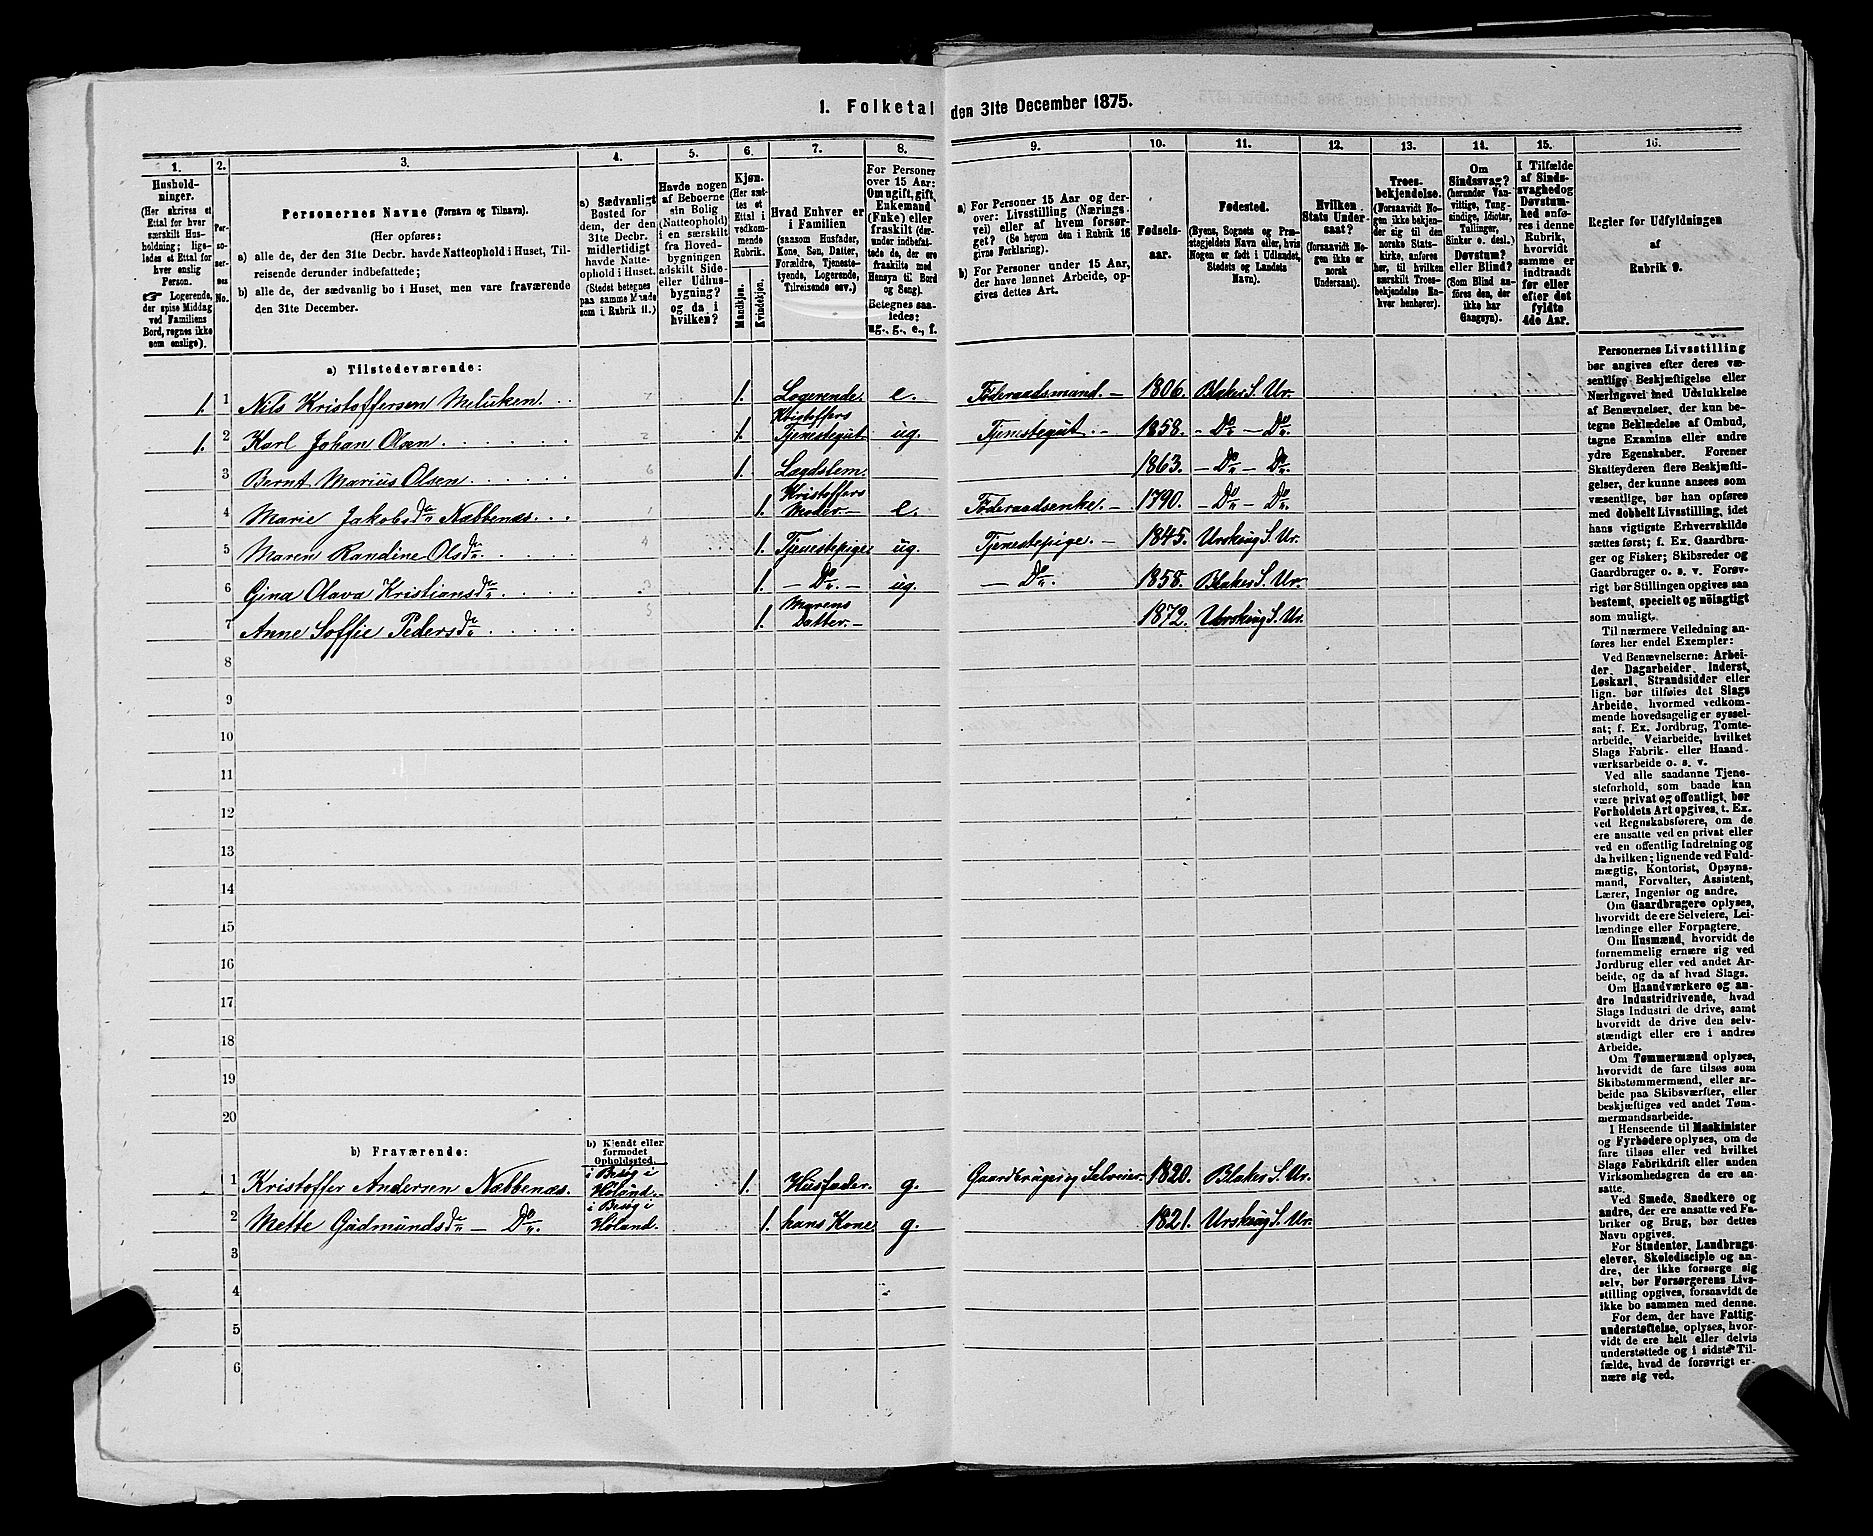 1. Folketal den 31te December 1875.
1.
Hushold-
ninger.
(Her skrives et
Ettal for hver
særskilt Hus-
holdning; lige-
ledes et Ettal for
hver enslig
Person.
☞ Logerende,
der spise Middag
ved Familiens
Bord, regnes ikke
som enslige).
2.
Per-
so-
ner-
nes
No.
3.
Personernes Navne (Fornavn og Tilnavn).
(Her opføres:
a) alle de, der den 31te Decbr. havde Natteophold i Huset, Til-
reisende derunder indbefattede;
b) alle de, der sædvanlig bo i Huset, men vare fraværende
den 31te December.
4.
a) Sædvanligt
Bosted for
dem, der den
31te Decbr.
midlertidigt
havde Natte-
ophold i Huset.
(Stedet betegnes
paa samme Maade
som i Rubrik 11.)
5.
Havde nogen
af Beboerne
sin Bolig
(Natteophold)
i en særskilt
fra Hoved-
bygningen
adskilt Side-
eller Udhus-
bygning?
og da i
hvilken?
6.
Kjøn.
(Her sæt-
tes et
Ettal i
vedkom-
mende
Rubrik.
Mandkjøn.
Kvindekjøn.
7.
Hvad Enhver er
i Familien
(saasom Husfader,
Kone, Søn, Datter,
Forældre, Tjeneste-
tyende, Logerende,
Tilreisende osv.)
8.
For Personer
over 15 Aar:
Om ugift, gift,
Enkemand
(Enke) eller
fraskilt (der-
under indbefat-
tede de, der ere
fraskilte med
Hensyn til Bord
og Seng).
Betegnes saa-
ledes:
ug., g., e., f.
9.
a) For Personer 15 Aar og der-
over: Livsstilling (Nærings-
vei) eller af hvem forsør-
get? (Se herom den i Rubrik 16
givne Forklaring).
b) For Personer under 15 Aar,
der have lønnet Arbeide, op-
gives dettes Art.
10.
Fødsels-
aar.
11.
Fødested.
(Byens, Sognets og Præ-
stegjeldets Navn eller, hvis
Nogen er født i Udlandet,
Stedets og Landets
Navn).
12.
Hvilken
Stats Under-
saat?
(forsaavidt No-
gen ikke er
norsk
Undersaat).
13.
Troes-
bekjendelse.
(Forsaavidt No-
gen ikke bekjen-
der sig til den
norske Stats-
kirke, anføres
her, til hvilken
særskilt Troes-
bekjendelse En-
hver henhører).
14.
Om
Sindssvag?
(herunder Van-
vittige, Tung-
sindige, Idioter,
Tullinger,
Sinker o. desl.)
Døvstum?
eller Blind?
(Som Blind an-
føres den, der
ikke har
Gangsyn).
15.
I Tilfælde
af Sinds-
svaghed og
Døvstum-
hed anfø-
res i denne
Rubrik,
hvorvidt
samme er
indtraadt
før eller
efter det
fyldte
4de Aar.
16.
Regler for Udfyldningen
af
Rubrik 9.
a) Tilstedeværende:
1. 1 Nils Kristoffersen Meluken. 1. Logerende. e. Föderaadsmand.— 1806. Blaker S. Ur.
1. 2 Karl Johan Olsen 1. Kristoffers Tjenestegut. ug. Tjenestegut.— 1858. — Do — Do
3 Bernt Marius Olsen 1. Lægdslem. 1863. — Do — Do
4 Marie Jakobsdr Næbbenæs. 1. Kristoffers Moder.— e. Föderaadsenke.— 1790. — Do — Do
5 Maren Randine Olsdr 1. Tjenestepige. ug. Tjenestepige.— 1845. Urskug S. Ur.
6 Gina Olava Kristiansdr 1. — Do.— ug. — Do. 1858. Blaker S. Ur.
7 Anne Soffie Pedersdr 1. Marens Datter.— 1872. Urskug S. Ur.
8
9
10
11
12
13
14
15
16
17
18
19
20
b) Fraværende:
b) Kjendt eller
formodet
Opholdssted.
1 Kristoffer Andersen Næbbenæs. i Besøg i Höland.— 1. Husfader. g. Gaardbruger og Selveier.— 1820. Blaker S. Ur.
2 Mette Gudmundsdr — Do. i Besøg i Höland. 1. hans Kone g. 1821. Urskug S. Ur.
3
4
5
6
Personernes Livsstilling
bør angives efter deres væ-
sentlige Beskjæftigelse eller
Næringsvei med Udelukkelse
af Benævnelser, der kun be-
tegne Beklædelse af Ombud,
tagne Examina eller andre
ydre Egenskaber. Forener
Skatteyderen flere Beskjæfti-
gelser, der kunne ansees som
væsentlige, bør han opføres
med dobbelt Livsstilling, idet
hans vigtigste Erhvervskilde
sættes først; f. Ex. Gaardbru-
ger og Fisker; Skibsreder og
Gaardbruger o. s. v. Forøv-
rigt bør Stillingen opgives saa
bestemt, specielt og nøiagtigt
som muligt.
Til nærmere Veiledning an-
føres her endel Exempler:
Ved Benævnelserne: Arbei-
der, Dagarbeider, Inderst,
Løskarl, Strandsidder eller
lign. bør tilføies det Slags
Arbeide, hvormed vedkom-
mende hovedsagelig er syssel-
sat; f. Ex. Jordbrug, Tomte-
arbeide, Veiarbeide, hvilket
Slags Fabrik- eller Haand-
værksarbeide o. s. v.
Ved alle saadanne Tjene-
steforhold, som baade kan
være privat og offentligt, bør
Forholdets Art opgives, t. Ex.
ved Regnskabsførere, om de
ere ansatte ved en privat eller
ved en offentlig Indretning og
da hvilken; lignende ved Fuld-
mægtig, Kontorist, Opsyns-
mand, Forvalter, Assistent,
Lærer, Ingeniør og andre.
Om Gaardbrugere oplyses,
hvorvidt de ere Selveiere, Lei-
lændinge eller Forpagtere.
Om Husmænd, hvorvidt de
fornemmelig ernære sig ved
Jordbrug eller ved andet Ar-
beide, og da af hvad Slags.
Om Haandværkere og an-
dre Industridrivende, hvad
Slags Industri de drive, samt
hvorvidt de drive den selv-
stændigt eller ere i andres
Arbeide.
Om Tømmermænd oplyses,
hvorvidt de fare tilsøs som
Skibstømmermænd, eller ar-
beide paa Skibsværfter, eller
beskjæftiges ved andet Tøm-
mermandsarbeide.
I Henseende til Maskinister
og Fyrbødere oplyses, om de
fare tilsøs eller ved hvilket
Slags Fabrikdrift eller anden
Virksomhedsgren de ere an-
satte.
Ved Smede, Snedkere og
andre, der ere ansatte ved Fa-
briker og Brug, bør dettes
Navn opgives.
For Studenter, Landbrugs-
elever, Skoledisciple og an-
dre, der ikke forsørge sig
selv, bør Forsørgerens Livs-
stilling opgives, forsaavidt de
ikke bo sammen med denne.
For dem, der have Fattig-
understøttelse, oplyses, hvor-
vidt de ere helt eller delvis
understøttede og i sidste Til-
fælde, hvad de forøvrigt er-
nære sig ved.